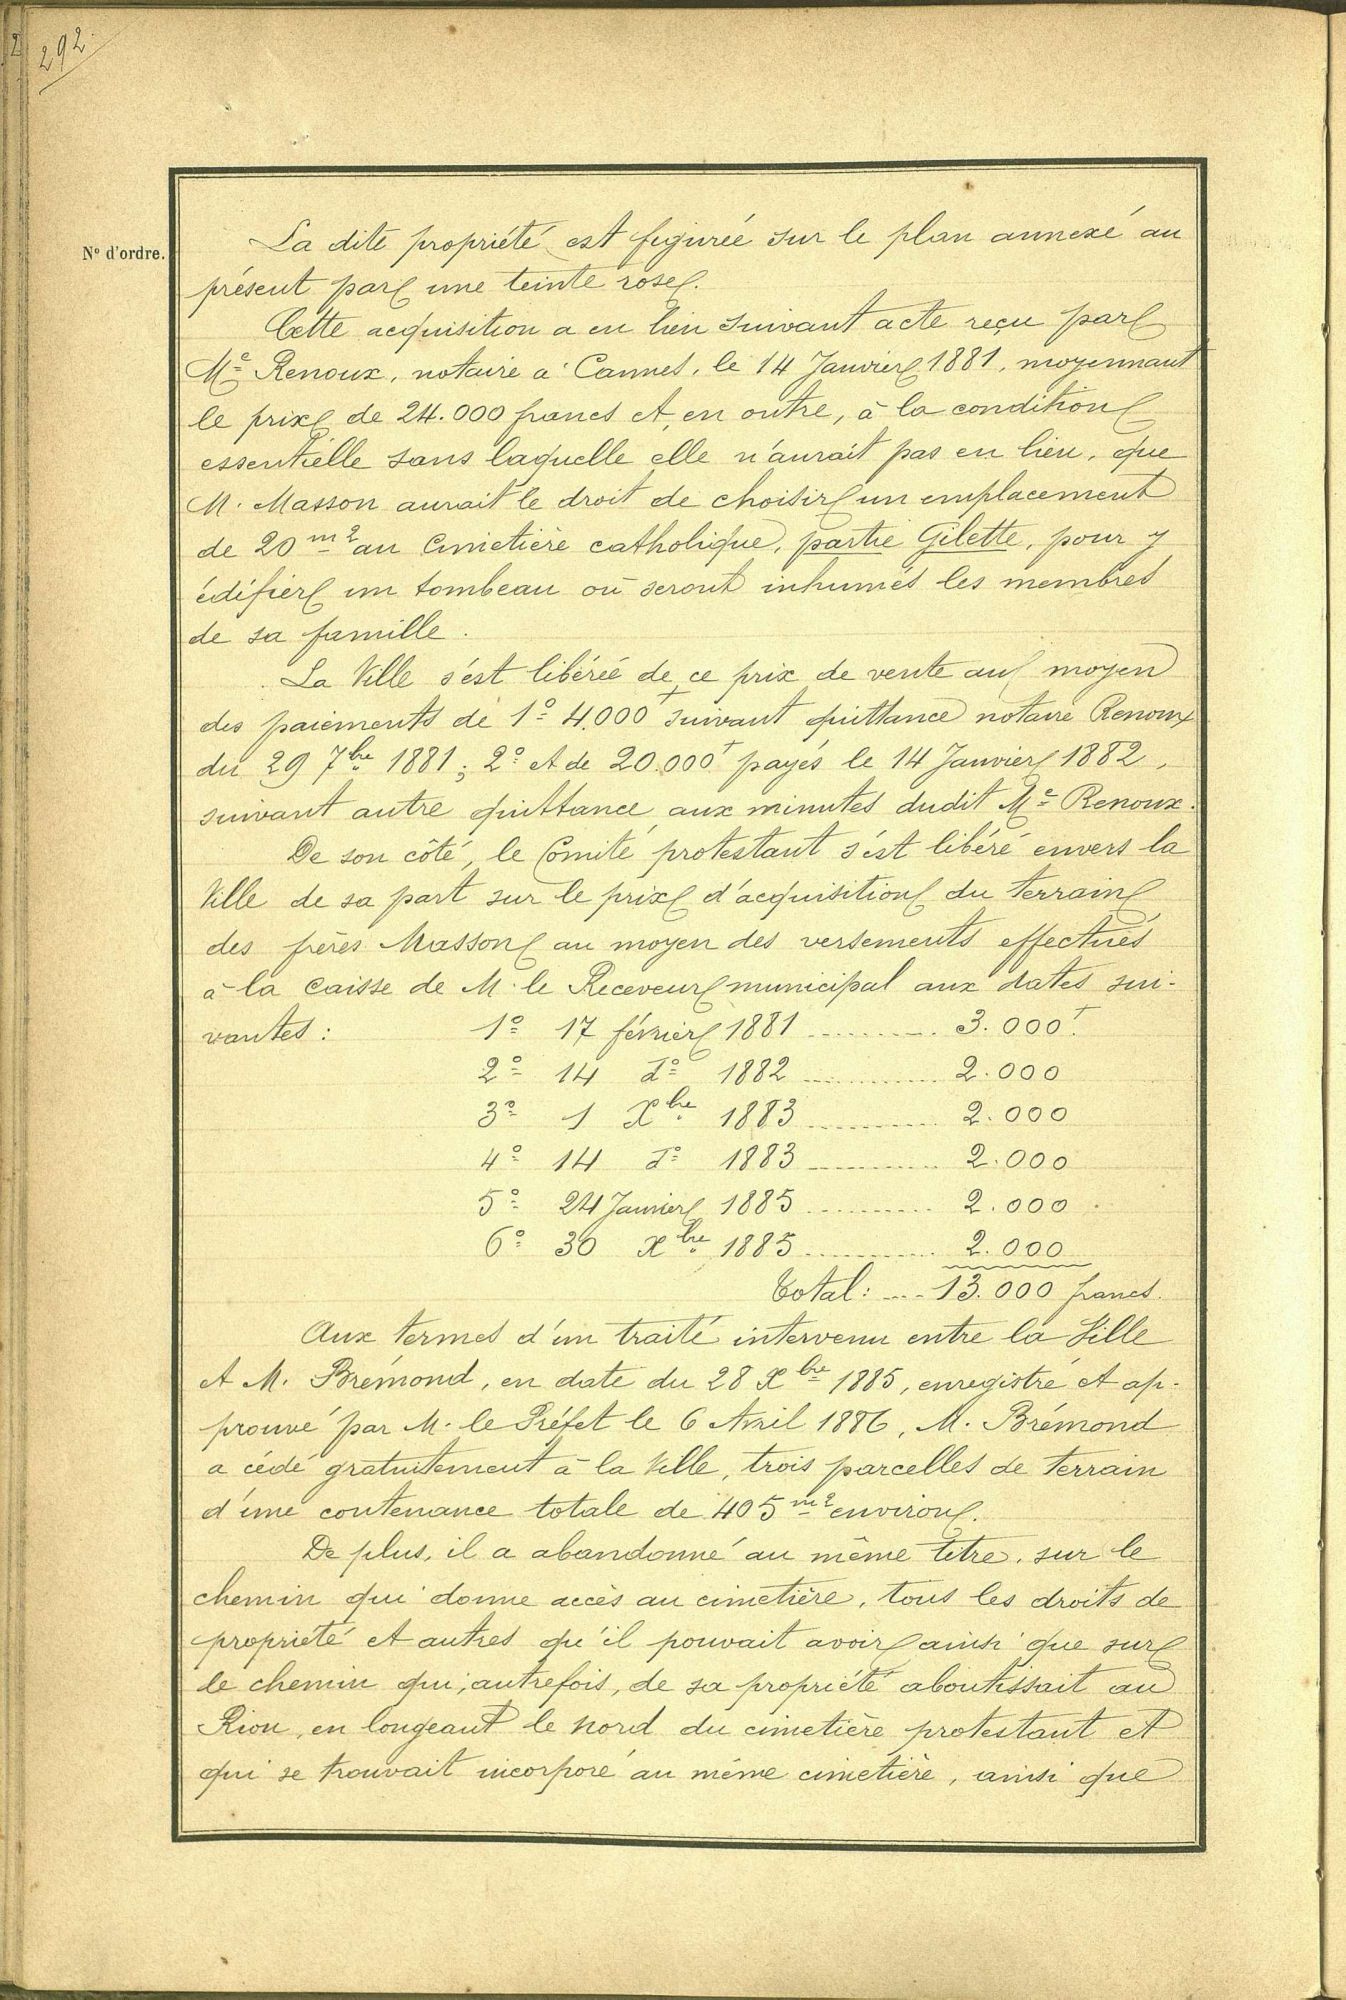 292.
N° d'ordre.
La dite propriété est figurée sur le plan annexé au
présent par une teinte rose.
Cette acquisition a eu lieu suivant acte reçu par
Me Renoux, notaire à Cannes, le 14 Janvier 1881, moyennant
le prix de 24.000 francs et, en outre, à la condition
essentielle sans laquelle elle n'aurait pas eu lieu, que
M. Masson aurait le droit de choisir un emplacement
de 20 m² au Cimetière catholique, partie Gilette, pour y
édifier un tombeau où seront inhumés les membres
de sa famille.
La Ville s'est libérée de ce prix de vente au moyen
des paiements de 1° 4.000f suivant quittance notaire Renoux
du 29 7bre 1881; 2° et de 20.000f payés le 14 Janvier 1882,
suivant autre quittance aux minutes dudit Me Renoux.
De son côté, le Comité protestant s'est libéré envers la
Ville de sa part sur le prix d'acquisition du terrain
des frères Masson au moyen des versements effectués
à la caisse de M. le Receveur municipal aux dates sui-
vantes: 1° 17 février 1881 .......... 3.000f.
2° 14 d° 1882 .......... 2.000
3° 1 Xbre 1883 .......... 2.000
4° 14 d° 1883 .......... 2.000
5° 24 Janvier 1885 .......... 2.000
6° 30 Xbre 1885 .......... 2.000
Total: .... 13.000 francs.
Aux termes d'un traité intervenu entre la Ville
et M. Brémond, en date du 28 Xbre 1885, enregistré et ap-
prouvé par M. le Préfet le 6 Avril 1886, M. Brémond
a cédé gratuitement à la Ville, trois parcelles de terrain
d'une contenance totale de 405 m² environ.
De plus, il a abandonné au même titre, sur le
chemin qui donne accès au cimetière, tous les droits de
propriété et autres qu'il pouvait avoir ainsi que sur
le chemin qui, autrefois, de sa propriété aboutissait au
Riou, en longeant le nord du cimetière protestant et
qui se trouvait incorporé au même cimetière, ainsi que